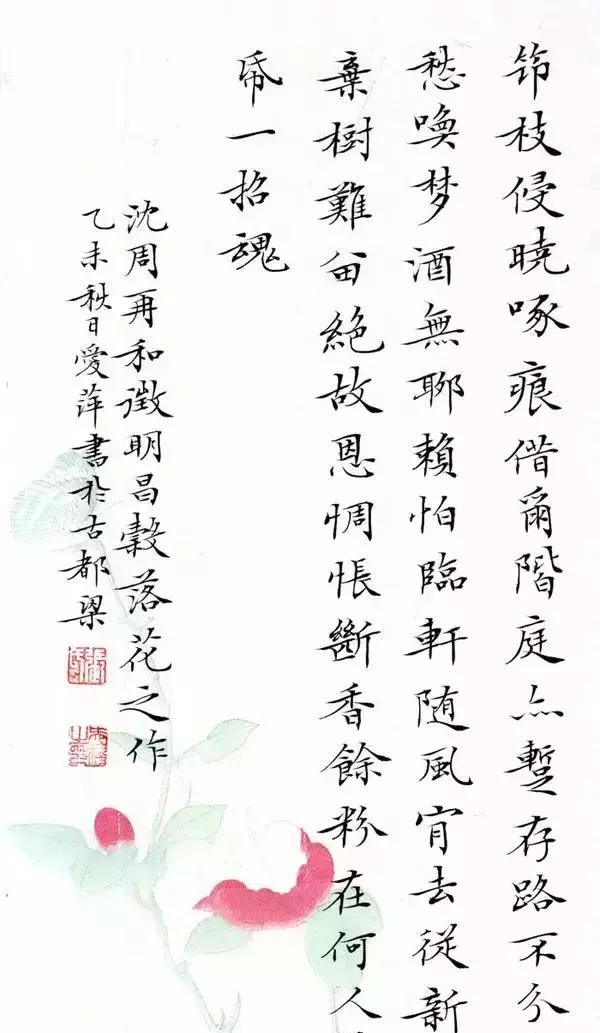 枝侵曉啄痕借爾階庭亦蹔存路不分
愁喚梦酒無聊賴怕臨軒随風肯去從新
棄樹難留絕故恩惆悵斷香餘粉在何人
帋一招魂
沈周再和徵明昌穀落花之作
乙未秋日愛萍書於古都梁